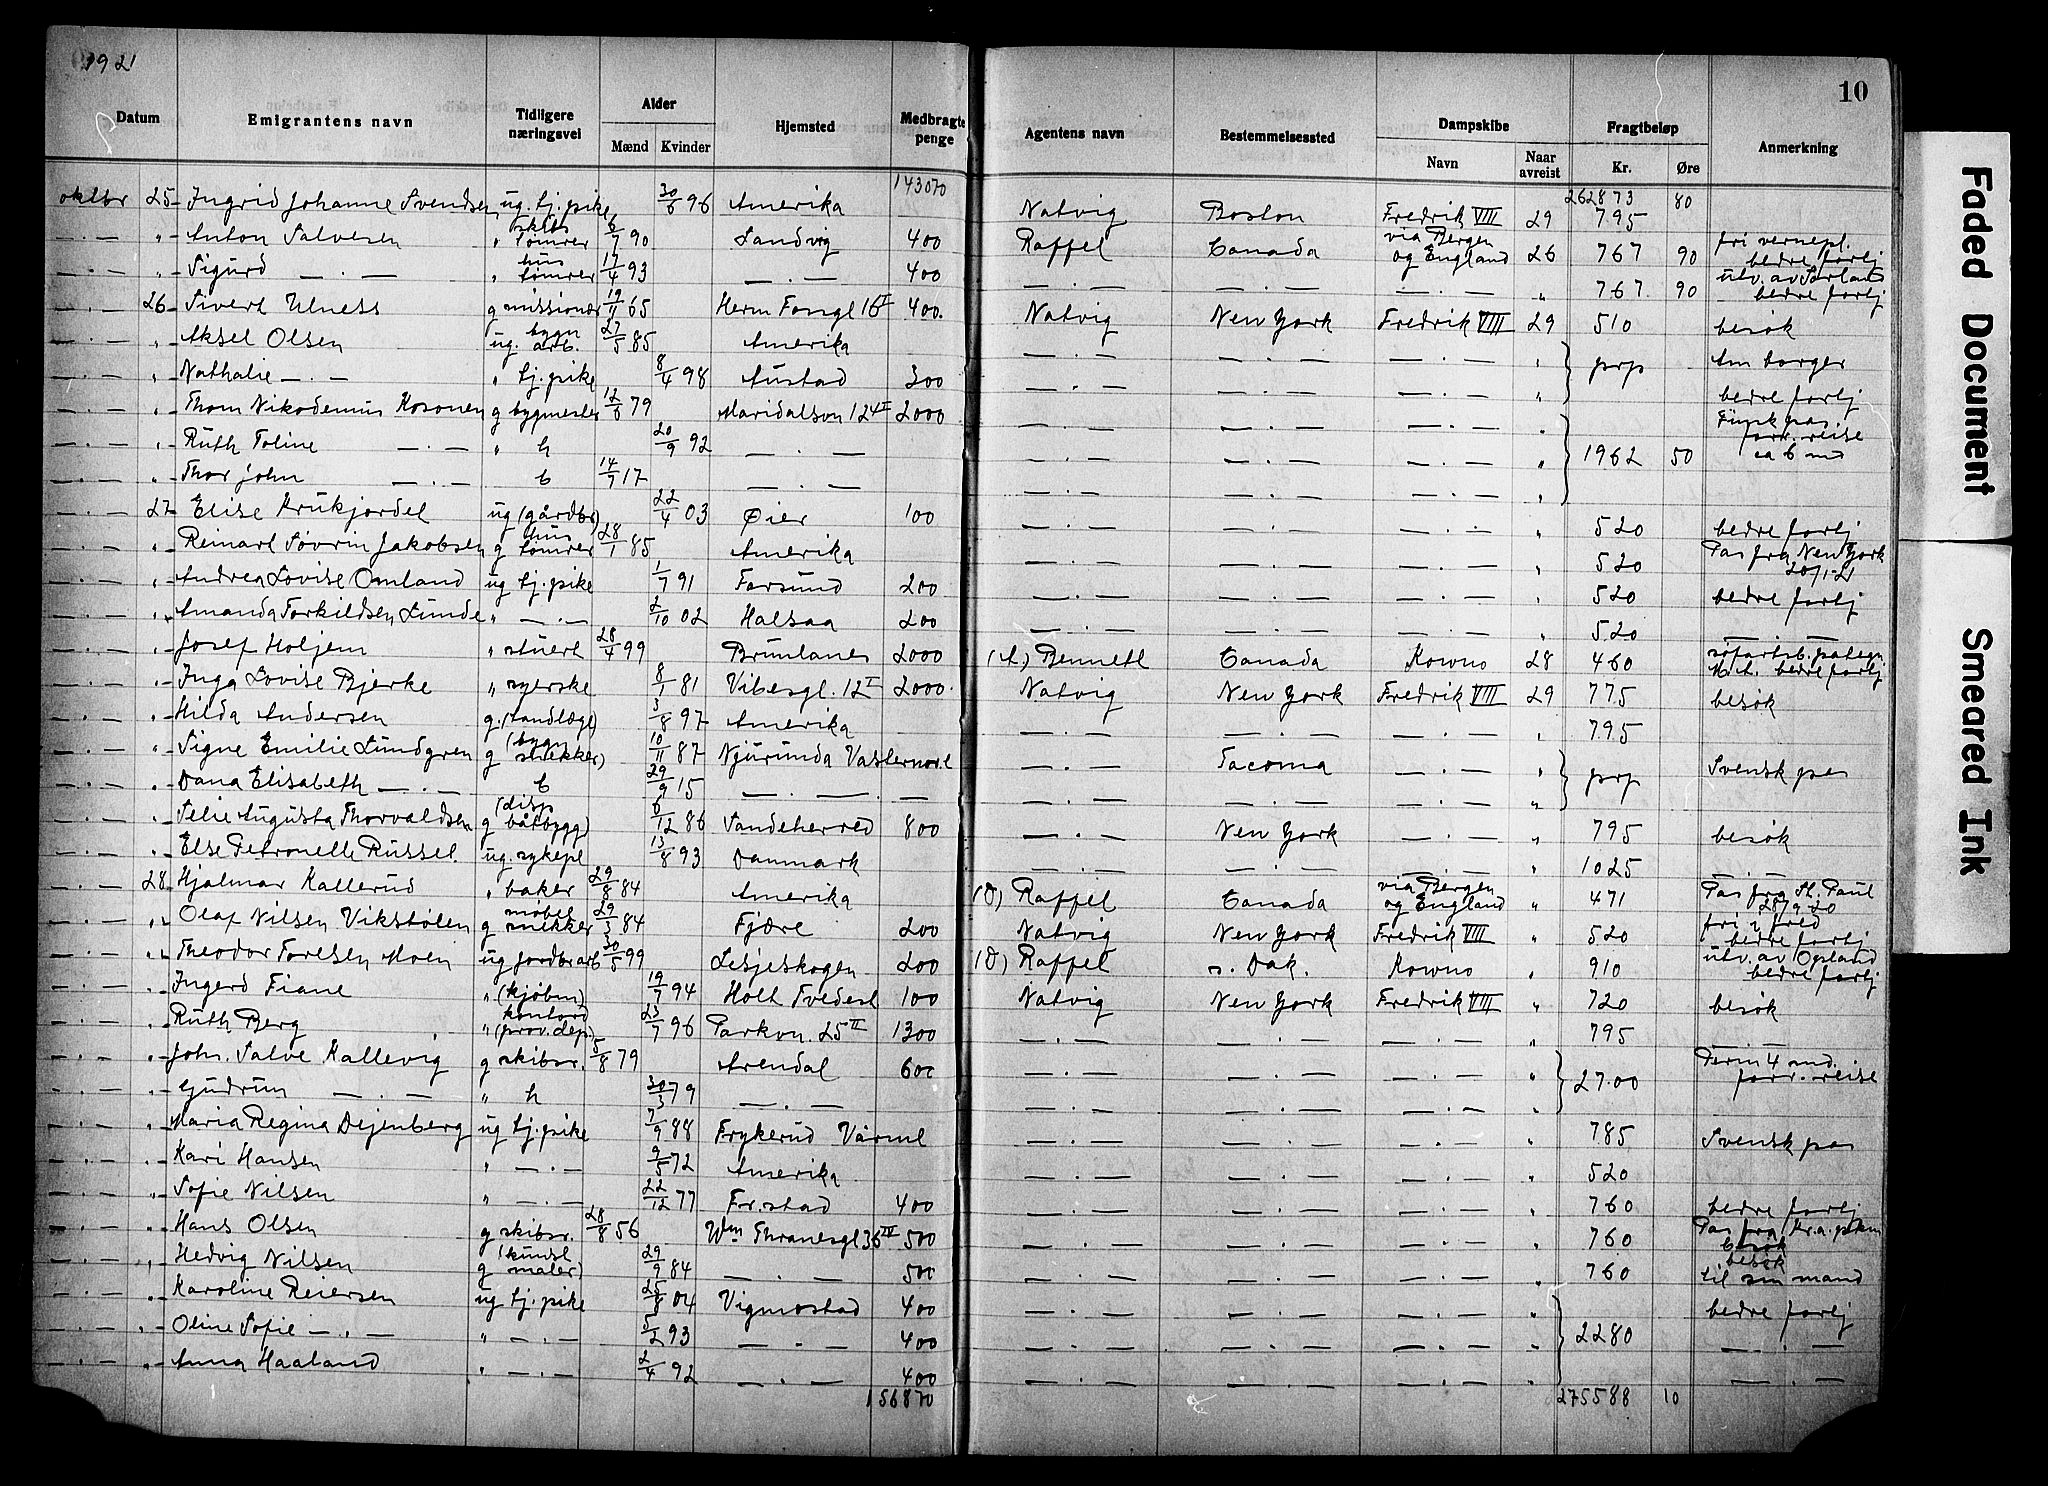 1921
10
Datum | Emigrantens navn | Tidligere næringsvei | Alder Mænd Kvinder | Hjemsted | Medbragte penge | Agentens navn | Bestemmelsessted | Dampskibe Navn Naar avreist | Fragtbeløp Kr. Øre | Anmerkning
143070 | 262873 80
oktbr 25 Ingrid Johanne Svendsen ug. tj. pike 30/6 96 Amerika | Natvig Boston Fredrik VIII 29 795
— . — " Anton Salvesen " skibs tømrer 6/7 90 Landvig 400 | Raffel Canada via Bergen og England 26 767 90 fri vernepl. bedre fortj
— . — " Sigurd — . — " hus tømrer 17/4 93 — . — 400 | — . — — . — — . — " 767 90 utv. av Sørlands bedre fortj
— . — 26 Sivert Ulness g missionær 19/11 65 Herm Fossgt 16 I 400. | Natvig New York Fredrik VIII 29 510 besøk
— . — " Aksel Olsen ug. bygn arb. 27/5 85 Amerika | — . — — . — — . — " prp Am borger
— . — " Nathalie — . — " tj. pike 8/4 98 Austad 300 | — . — — . — — . — " bedre fortj
— . — " Thom Nikodemus Kosonen g bygmester 12/6 79 Maridalsvn 124 II 2000 | — . — — . — — . — " Finsk pas forr. reise ca 6 md
— . — " Ruth Toline — . — " h 20/9 92 — . — | — . — — . — — . — " 1962 50
— . — " Thor John — . — b 14/7 17 — . — | — . — — . — — . — "
— . — 27 Elise Krukjordel ug (gårdbr) 22/4 03 Øier 100 | — . — — . — — . — " 520 bedre fortj
— . — " Reinart Søvrin Jakobsen g hus tømrer 28/1 85 Amerika | — . — — . — — . — " 520 Pas fra New York 20/1-21
— . — " Andrea Lovise Omland ug tj. pike 1/7 91 Farsund 200 | — . — — . — — . — " 520 bedre fortj
— . — " Amanda Torkildsen Lunde " — . — 2/10 02 Halsaa 200 | — . — — . — — . — " 520 — . —
— . — " Josef Holjem " stuert 28/4 99 Brunlanes 2000 | Bennett Canada Kowno 28 460 søfartsb. bedre fortj
— . — " Inga Lovise Bjerke " syerske 8/1 81 Vibesgt. 12 I 2000. | Natvig New York Fredrik VIII 29 775 besøk
— . — " Hilda Andersen g. (tandlæge) 3/8 97 Amerika | — . — — . — — . — " 795
— . — " Signe Emilie Lundgren g (bygn snekker) 10/11 87 Njurunda Vesternorl | — . — Tacoma — . — " prp Svensk pas
— . — " Dana Elisabeth — . — b 29/9 15 — . — — | — . — — . — — . — "
— . — " Selie Augusta Thorvaldsen g (disp båtbygg) 6/12 86 Sandeherred 800 | — . — New York — . — " 795 besøk
— . — " Else Petronelle Russel. ug. sykepl 13/8 93 Danmark | — . — — . — — . — " 1025 — . —
— . — 28 Hjalmar Kallerud " baker 29/8 84 Amerika | (D) Raffel Canada via Bergen og England " 471 Pas fra St. Paul 28/9-20
— . — " Olaf Nilsen Vikstølen g møbel snekker 29/3 84 Fjære 200 | Natvig New York Fredrik VIII " 520 fri i fred bedre fortj
— . — " Theodor Toresen Moen ug jordbr arb 30/5 99 Lesjeskogen 200 | (D) Raffel s. Dak. Kowno " 910 utv. av Opland bedre fortj
— . — " Ingerd Fiane " (kjøbm) 19/7 94 Holt Tvedest 100 | Natvig New York Fredrik VIII " 720 besøk
— . — " Ruth Berg " kontord (prov. dep) 23/7 96 Parkvn. 25 II 1300 | — . — — . — — . — " 795 — . —
— . — " John. Salve Kallevig g skibsr. 5/8 79 Arendal 600 | — . — — . — — . — " 2700 Perm 4 md. forr. reise
— . — " Gudrun — . — " h 30/3 79 — . — | — . — — . — — . — "
— . — " Maria Regina Dejenberg ug tj. pike 7/9 88 Frykerud Värml | — . — — . — — . — " 785 Svensk pas
— . — " Kari Hansen " — . — 9/5 72 Amerika | — . — — . — — . — " 520
— . — " Sofie Nilsen " — . — 22/12 77 Fr.stad 400 | — . — — . — — . — " 760 bedre fortj
— . — " Hans Olsen g skibsr. 28/8 56 Wm Thranesgt 36 IV 500 | — . — — . — — . — " 760 Pas fra Kr.a. besøk
— . — " Hedvig Nilsen g (kunst maler) 29/9 84 — . — 500 | — . — — . — — . — " 760 besøk til sin mand
— . — " Karoline Reiersen ug tj. pike 25/8 04 Vigmostad 400 | — . — — . — — . — " bedre fortj
— . — " Oline Sofie — . — " — . — 5/2 93 — . — 400 | — . — — . — — . — " 2280 — . —
— . — " Anna Haaland " — . — 2/4 92 — . — 400 | — . — — . — — . — " — . —
156870 | 275588 10
Faded Document
Smeared Ink